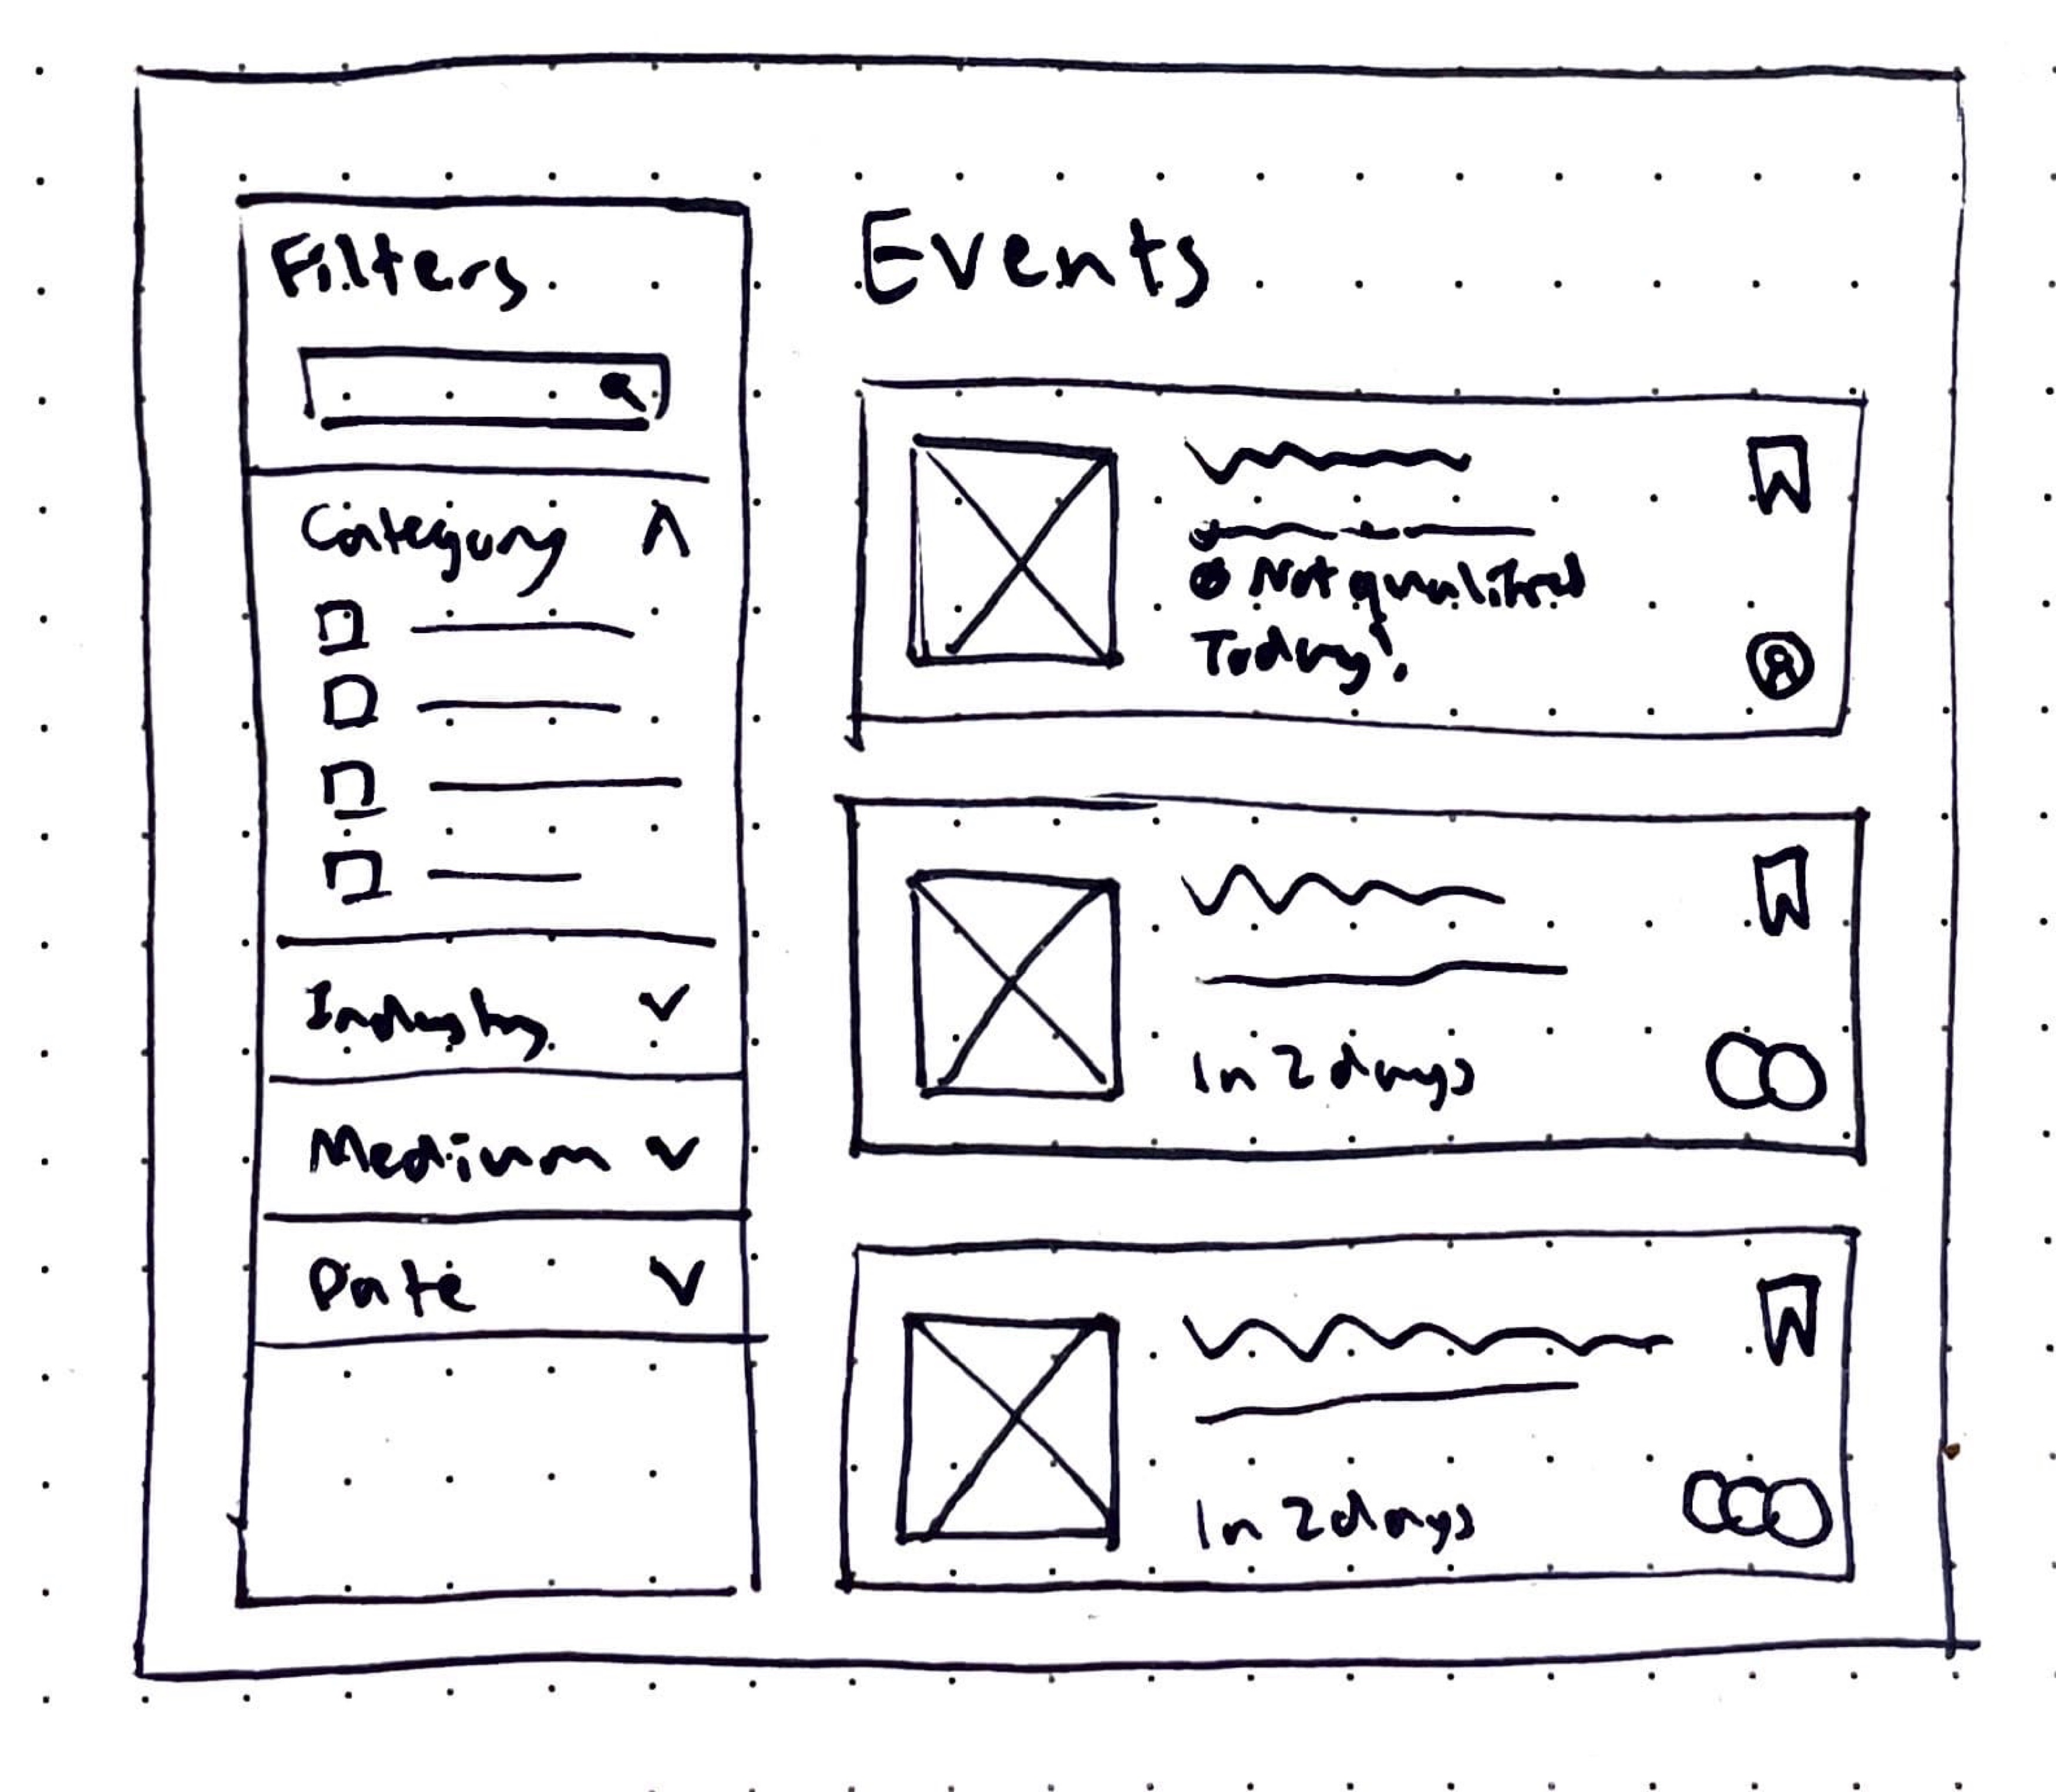 Filters
Category
Industry
Medium
Date
Events
Not qualified
Today!
In 2 days
In 2 days